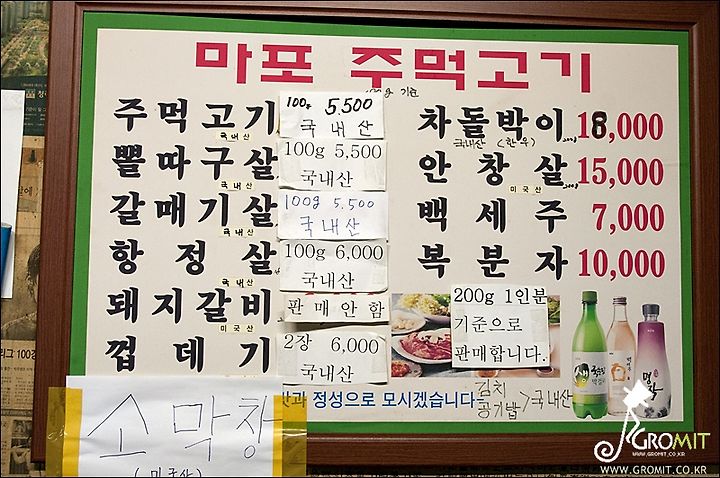 마포 주먹고기
100g 기준
주먹고기 100g 5,500
국내산 국내산
뽈따구살 100g 5,500
국내산 국내산
갈매기살 100g 5,500
국내산 국내산
항정살 100g 6,000
국내산 국내산
돼지갈비 판매안함
미국산
껍데기 2장 6,000
국내산
차돌박이 18,000
국내산 (한우)
안창살 15,000
미국산
백세주 7,000
복분자 10,000
200g 1인분
기준으로
판매합니다.
정성으로 모시겠습니다
김치
공기밥 > 국내산
소막창
(미국산)
생
GROMIT
WWW.GROMIT.CO.KR
WWW.GROMIT.CO.KR